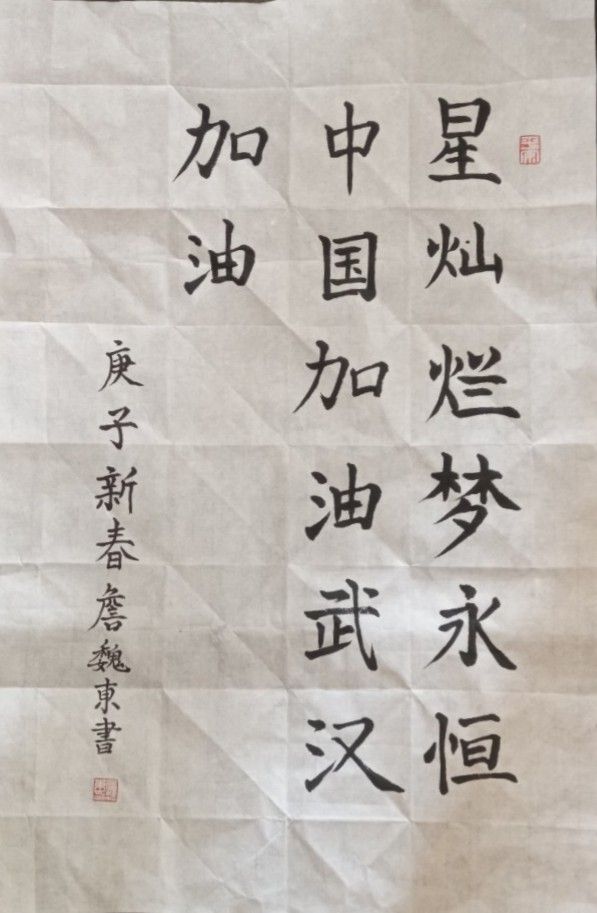 星灿烂梦永恒
中国加油武汉
加油
庚子新春詹魏東書